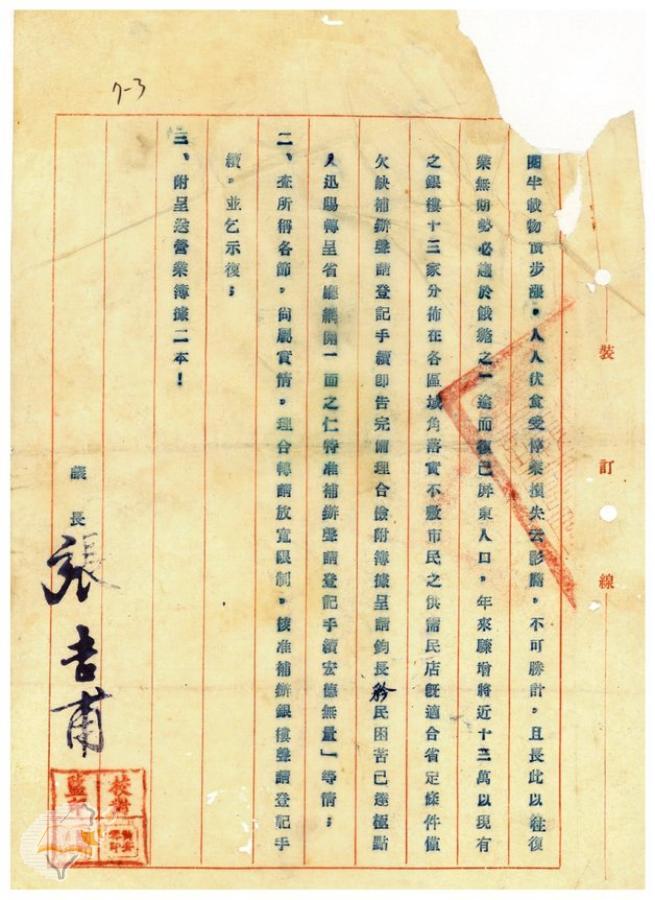 7-3
裝訂線
閱半載物價步漲，人人伙食受停業損失云影響，不可勝計，且長此以往復
業無期勢必趨於餓斃之一途而復已屏東人口，年來驟增將近十三萬以現有
之銀樓十三家分佈在各區域角落實不敷市民之供需民店旣適合省定條件僅
欠缺補辦聲請登記手續即告完備理合檢附簿據呈請鈞長矜民困苦已達極點
迅賜轉呈省廳網開一面之仁特准補辦聲請登記手續宏德無量」等情；
二、查所稱各節，尚屬實情，理合轉請放寬限制，俊准補辦銀樓聲請登記手
續，並乞示復；
三、附呈送營業簿據二本！
議長 張吉甫
校對
監印